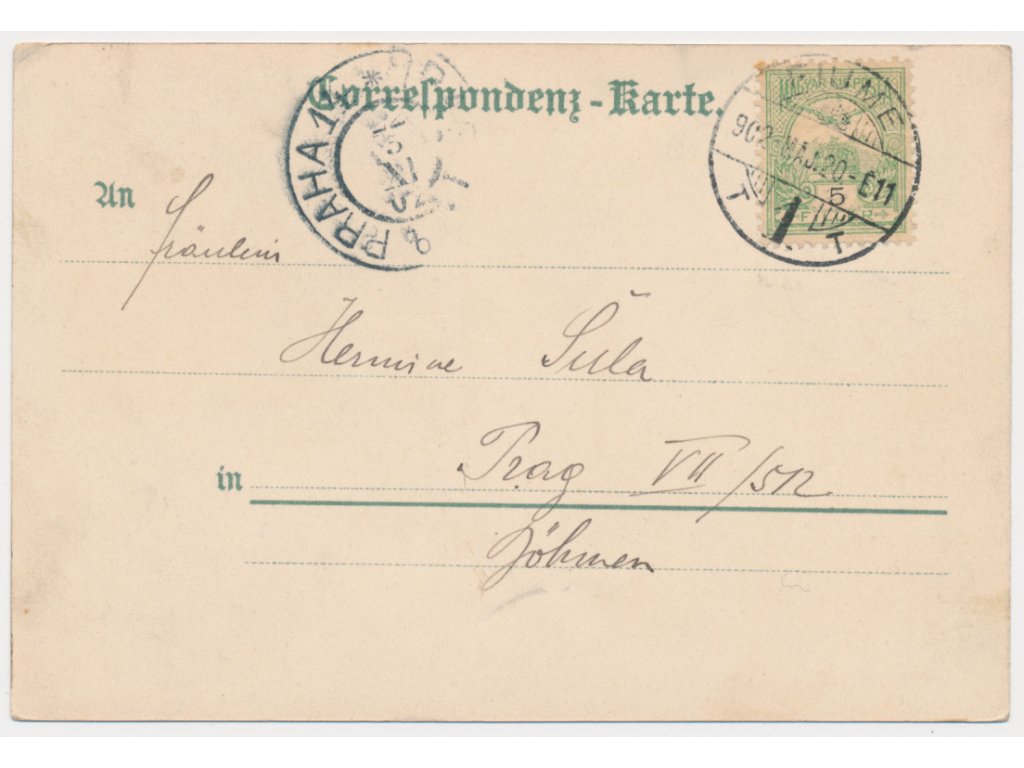 Correspondenz-Karte.
FIUME
902 MÁJ. 20-É11
T 1 T
MAGYAR
5
PRAHA
An
Fräulein
Hermine Šůla
in Prag VII/512
Böhmen